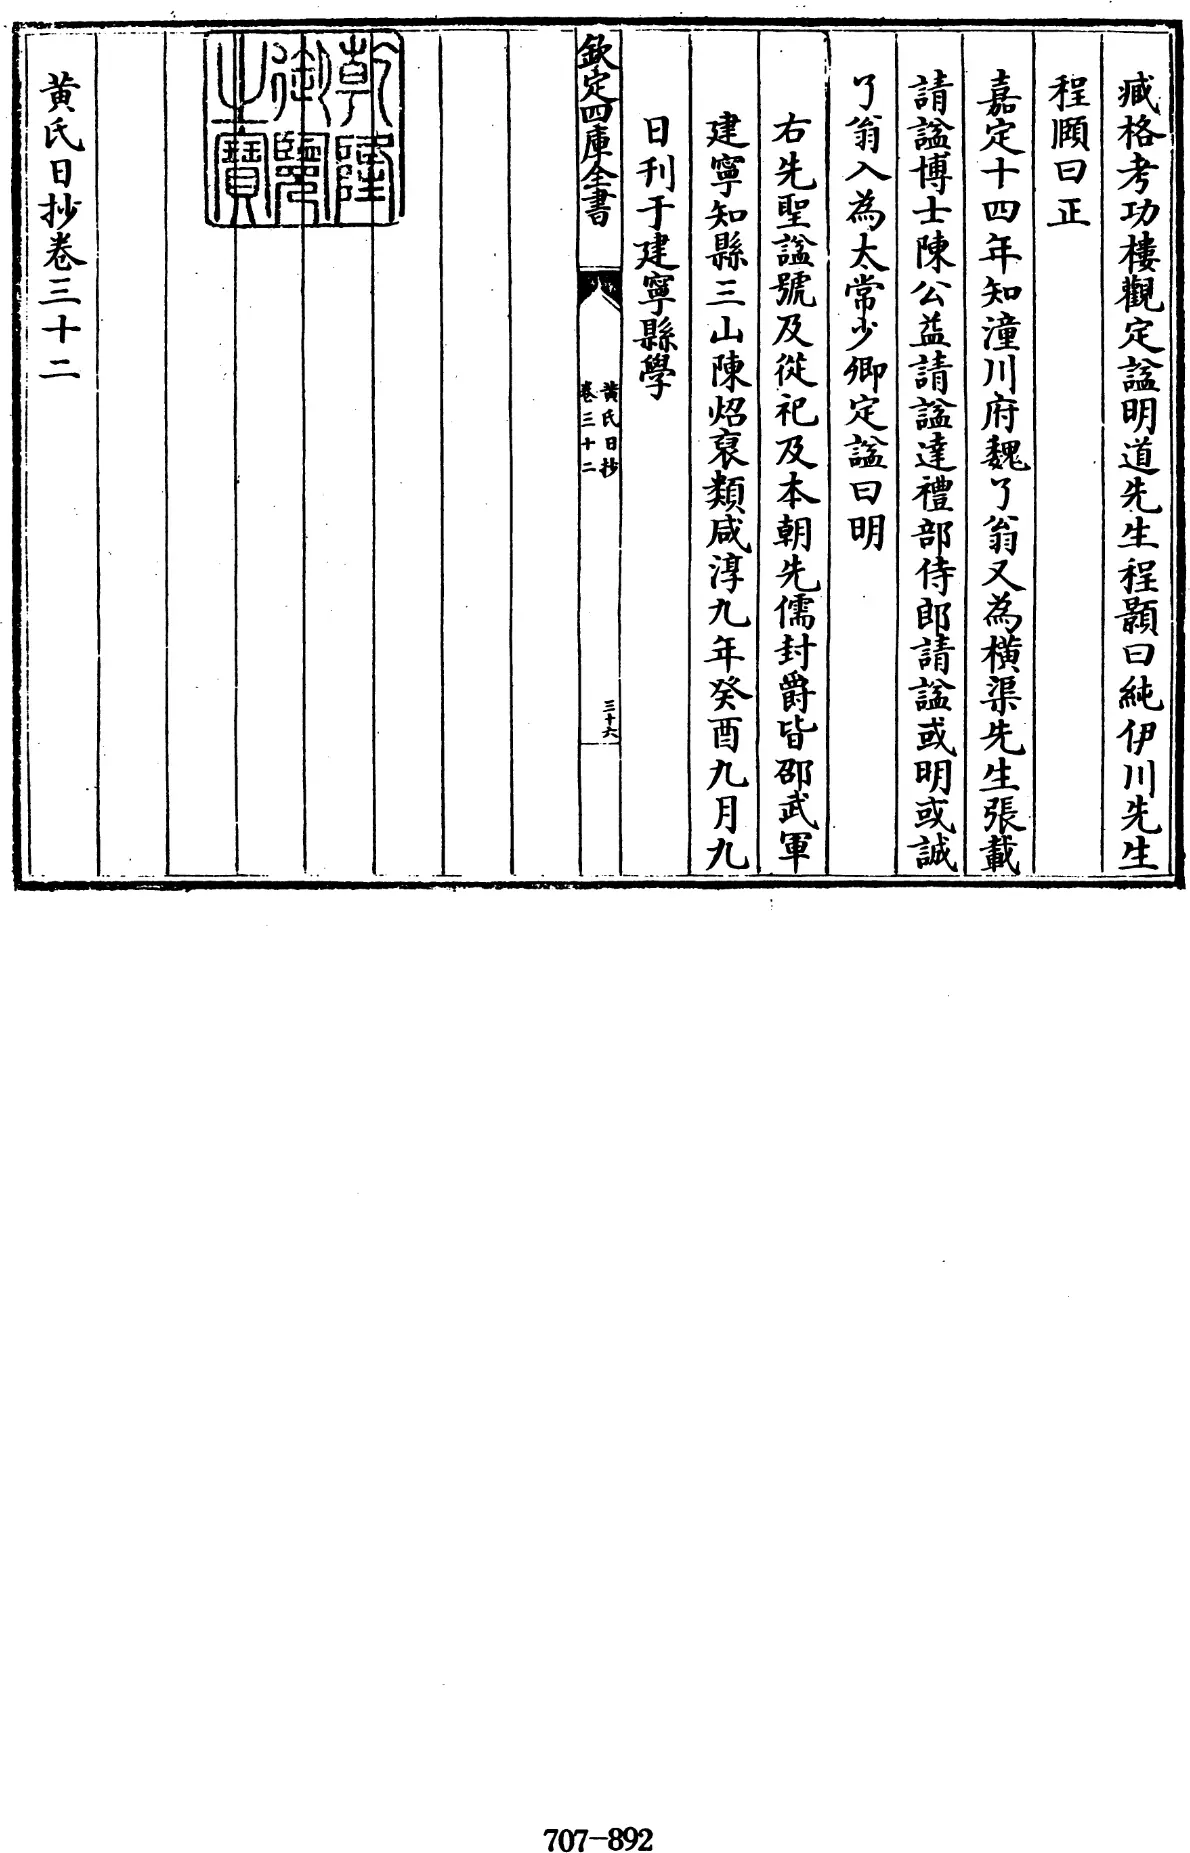 臧格考功樓觀定諡明道先生程顥曰純伊川先生
程頤曰正
嘉定十四年知潼川府魏了翁又為橫渠先生張載
請諡博士陳公益請諡達禮部侍郎請諡或明或誠
了翁入為太常少卿定諡曰明
右先聖諡號及從祀及本朝先儒封爵皆邵武軍
建寧知縣三山陳炤裒類咸淳九年癸酉九月九
日刊于建寧縣學
欽定四庫全書
黃氏日抄
卷三十二
三十六
乾隆
御覽
之寶
黃氏日抄卷三十二
707-892